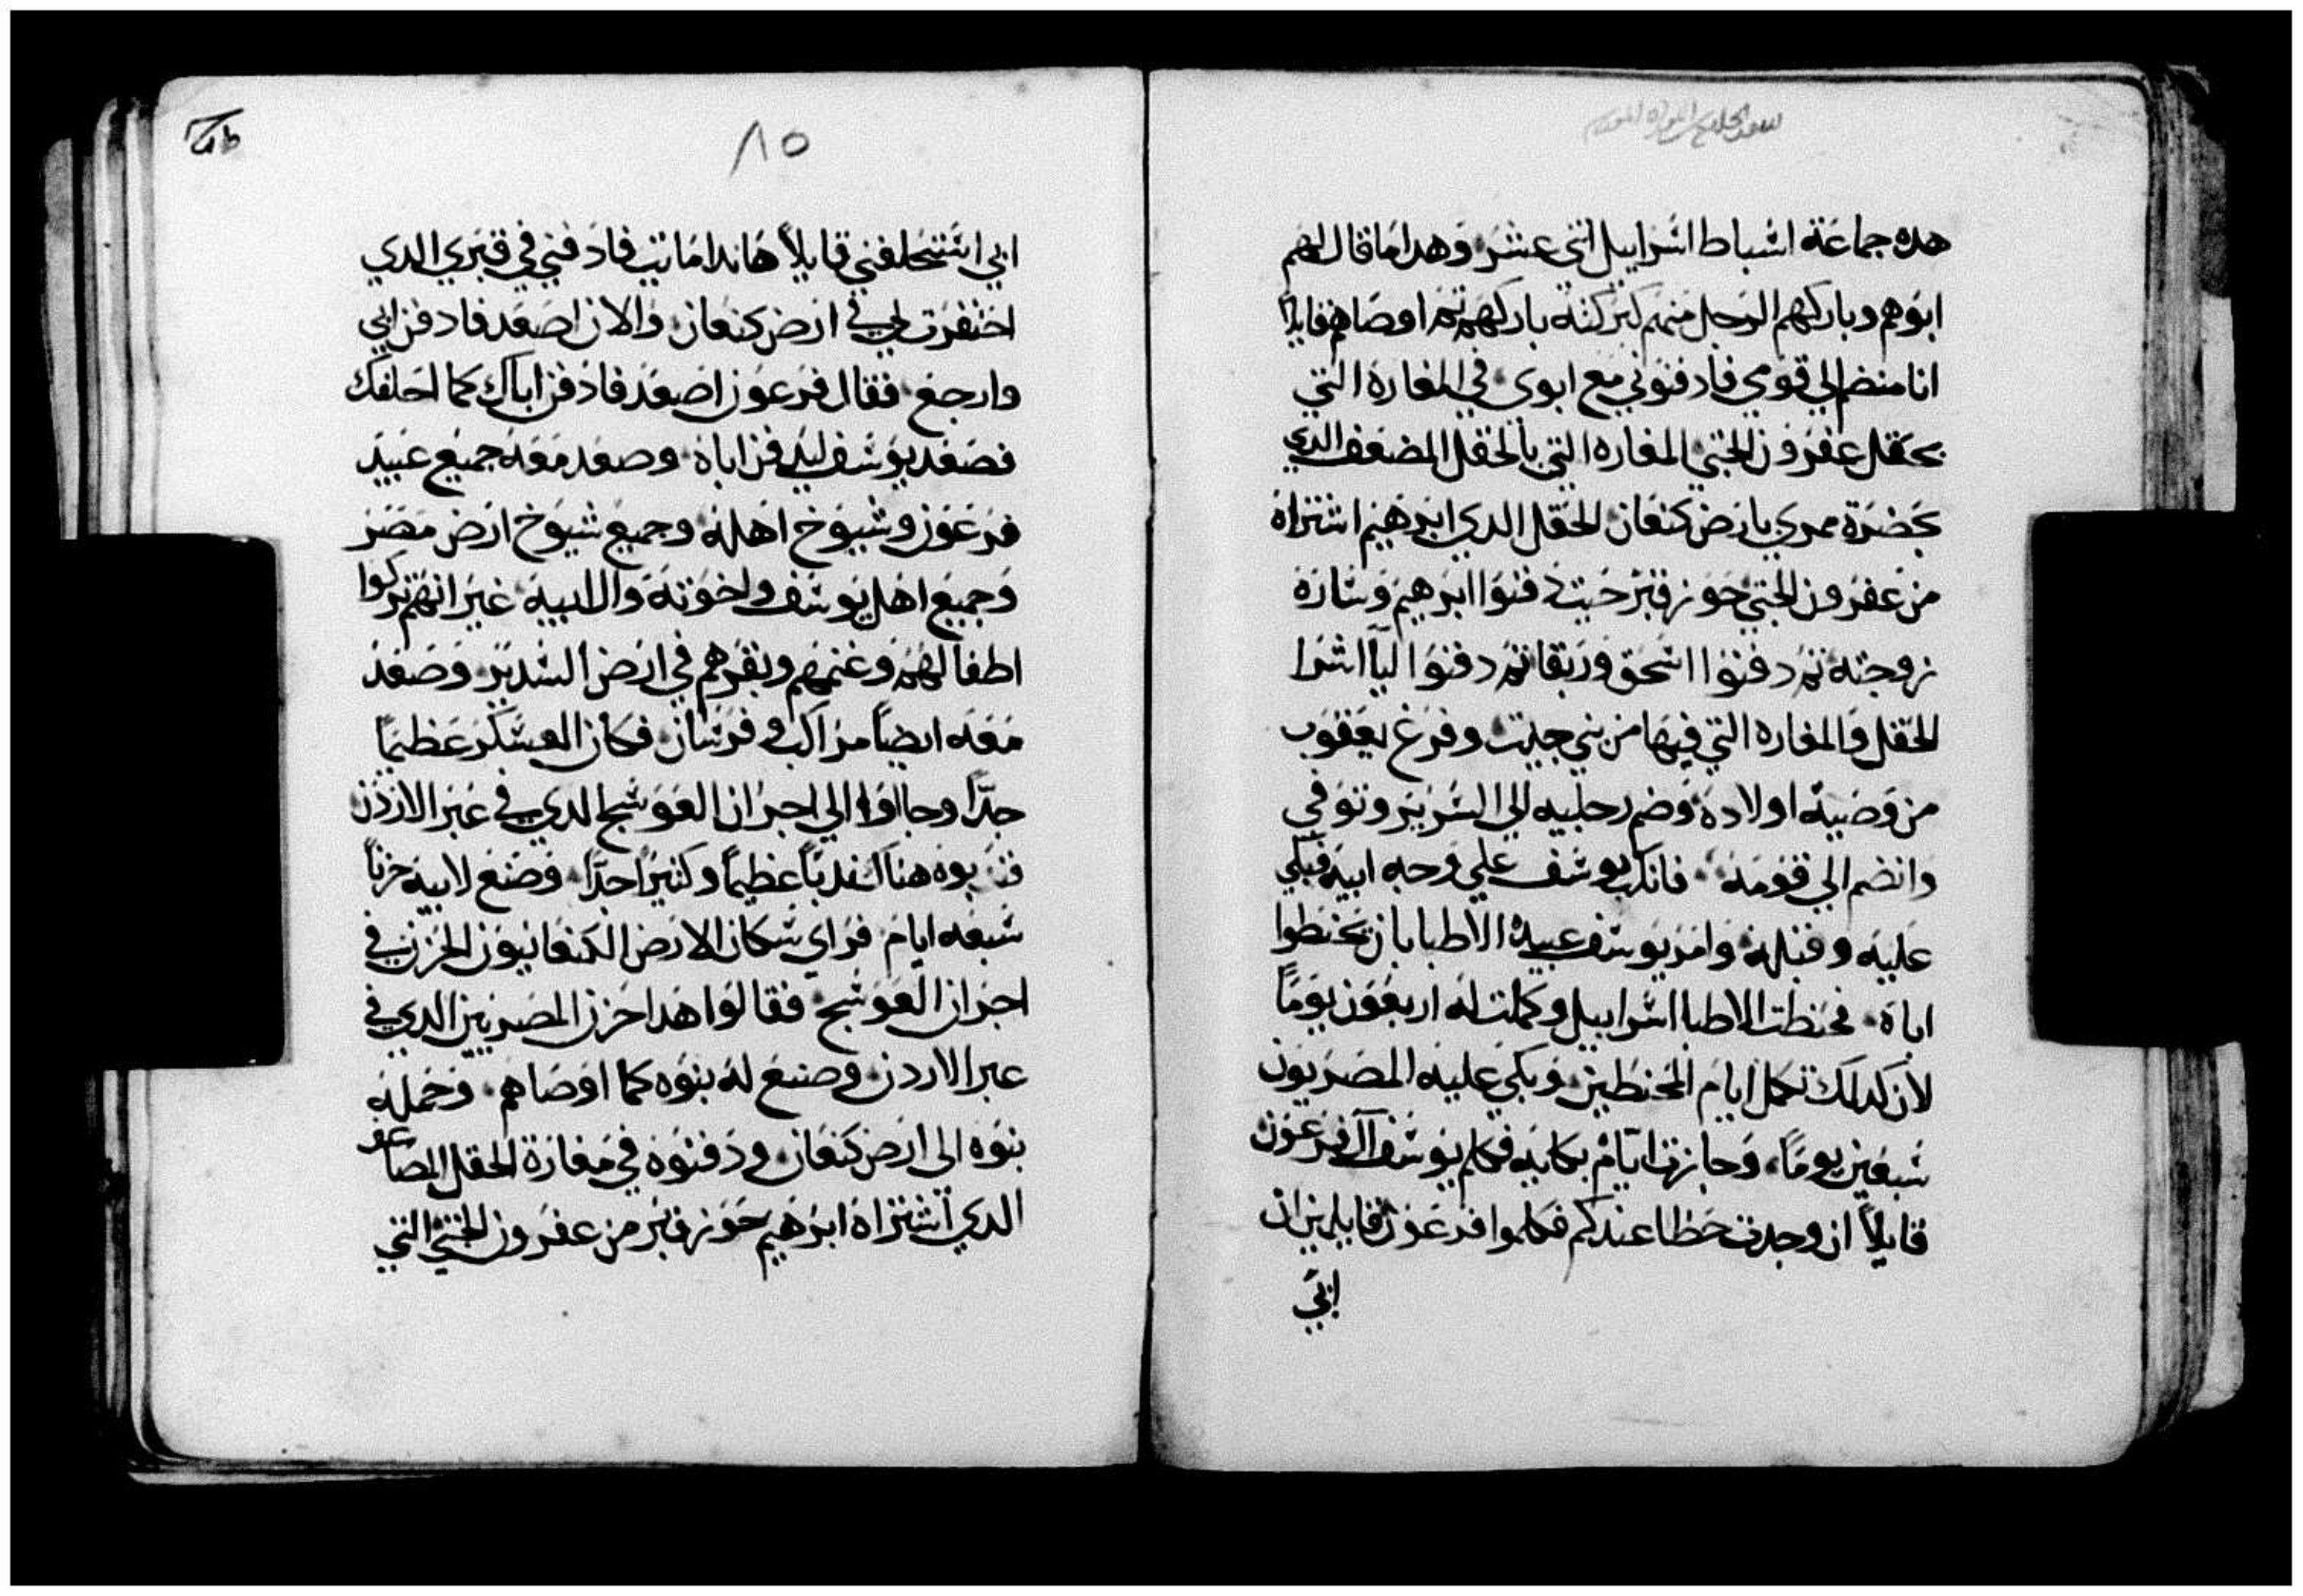 هده جماعة اسباط اسراييل اتنى عشر وهدا ما قال لهم
ابوهم وباركهم الرجل منهم كبركته باركهم تم اوصاهم قايلا
انا منضم الي قومي فادفنوني مع ابوي في المغارة التي
بحقل عفرون الحتي المغاره التي بالحقل المضعف الدي
بحضرة ممري بارض كنعان الحقل الدي ابرهيم اشتراه
من عفرون الحتي حوز قبر حيت دفنوا ابرهيم وساره
زوجته تم دفنوا اسحق وربقا تم دفنوا ليا اشرا
الحقل والمغاره التي فيها من بني حيت وفرغ يعقوب
من وصية اولاده وضم رحليه الي السرير وتوفي
وانضم الي قومه فانكب يوسف علي وجه ابيه فبكي
عليه وقبله وامر يوسف عبيده الاطبا بان يحنطوا
اباه فحنطت الاطبا اسراييل وكملت له اربعون يوما
لان كدلك تكمل ايام المحنطين وبكي عليه المصريون
سبعين يوما وجازت ايام بكايه فكلم يوسف آل فرعون
قايلاً ان وجدت حظا عندكم فكلموا فرعون قايلين ان
ابي
٨٥
ابي استحلفني قايلاً هاندا مايت فادفني في قبري الدي
احتفرت لي في ارض كنعان والان اصعد فادفن ابي
وارجع فقال فرعون اصعد فادفن اباك كما احلفك
فصعد يوسف ليدفن اباه وصعد معه جميع عبيد
فرعون وشيوخ اهله وجميع شيوخ ارض مصر
وجميع اهل يوسف واخوته وال ابيه غير انهم تركوا
اطفالهم وغنمهم وبقرهم في ارض السدير وصعد
معه ايضاً مراكب وفرسان فكان العسكر عظيماً
جدًّا وجااوا الي اجران العوسج الدي في عبر الاردن
فندبوه هناك ندباً عظيماً وكتيراً جدًّا وصنع لابيه حزناً
سبعه ايام فراي سكان الارض الكنعانيون الحزن في
اجران العوسج فقالوا هدا حزن المصريين الدي في
عبر الاردن وصنع له بنوه كما اوصاهم وحمله
بنوه الي ارض كنعان ودفنوه في مغارة الحقل المضاعف
الدي اشتراه ابرهيم حوز قبر من عفرون الحتي التي